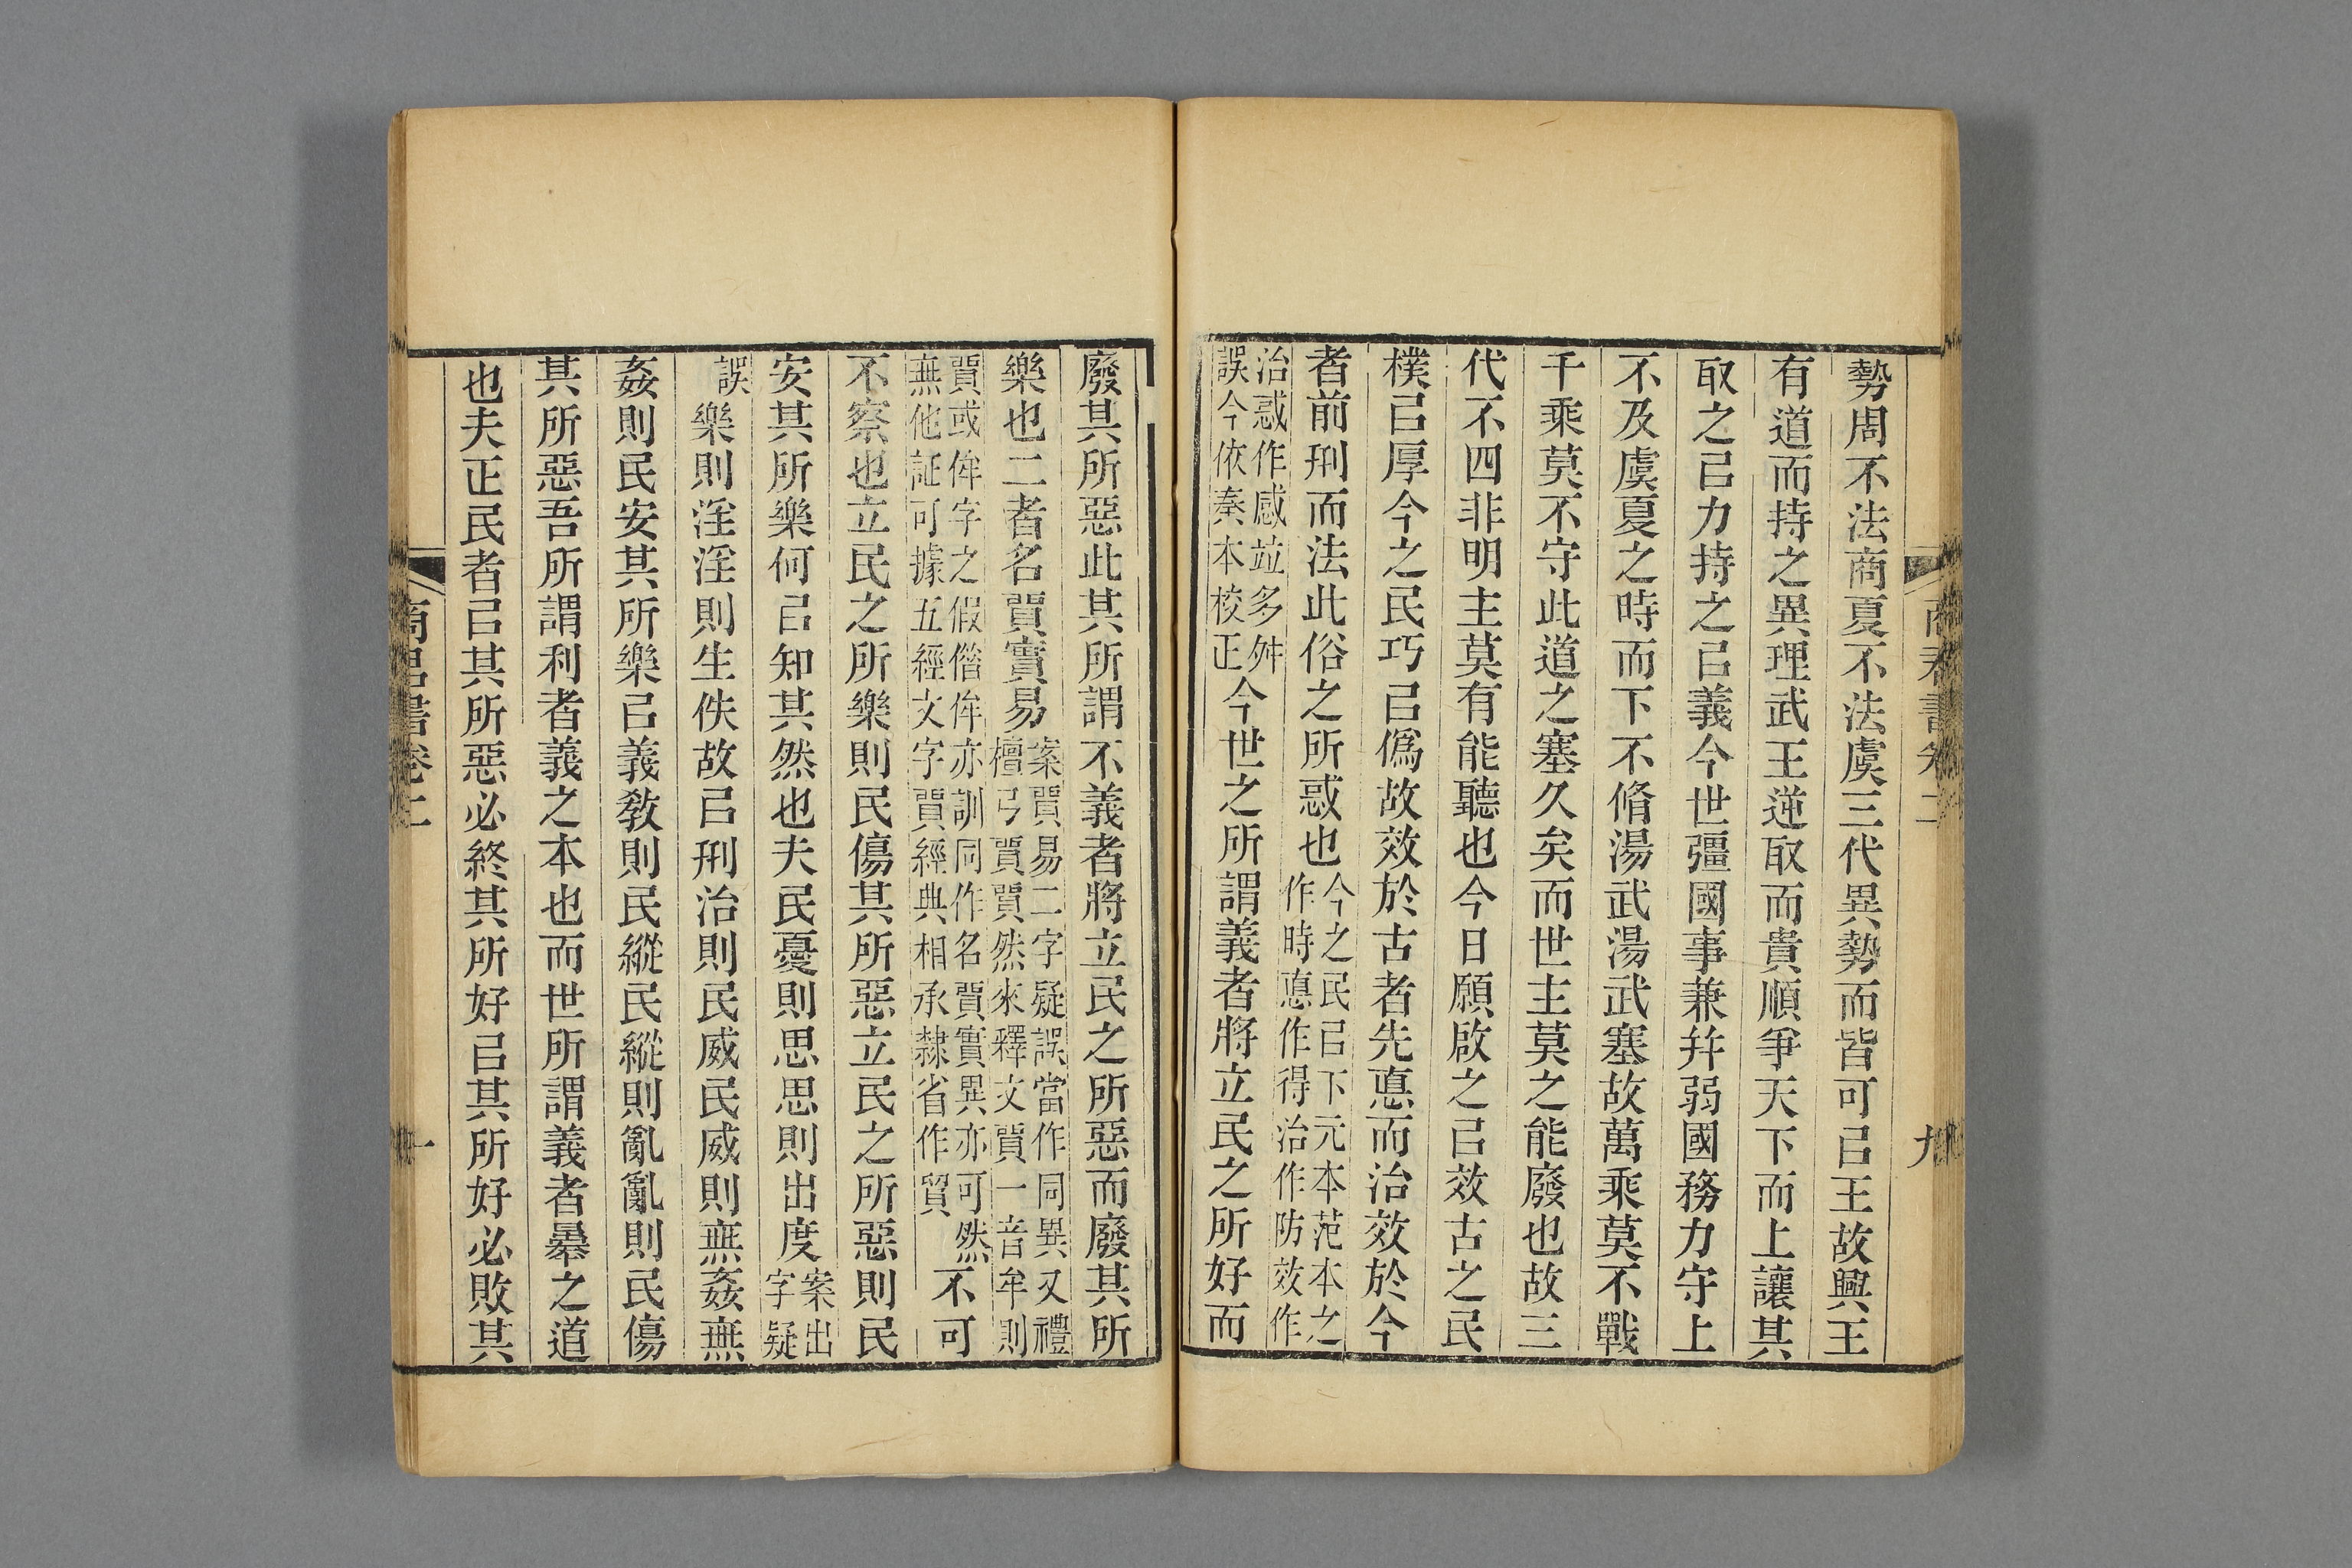 勢周不法商夏不法虞三代異勢而皆可㠯王故興王
有道而持之異理武王逆取而貴順爭天下而上讓其
取之㠯力持之㠯義今世彊國事兼幷弱國務力守上
不及虞夏之時而下不脩湯武湯武塞故萬乘莫不戰
千乘莫不守此道之塞久矣而世主莫之能廢也故三
代不四非明主莫有能聽也今日願啟之㠯效古之民
樸㠯厚今之民巧㠯僞故效於古者先悳而治效於今
者前㓝而法此俗之所惑也今之民㠯下元本范本之作時悳作得治作防效作
治惑作感竝多舛誤今依秦本校正今世之所謂義者將立民之所好而
廢其所惡此其所謂不義者將立民之所惡而廢其所
樂也二者名貿實易案貿易二字疑誤當作同異又禮檀弓貿貿然來釋文貿一音牟則
貿或侔字之假偕侔亦訓同作名貿實異亦可然無他証可據五經文字貿經典相承隸省作貿不可
不察也立民之所樂則民傷其所惡立民之所惡則民
安其所樂何㠯知其然也夫民憂則思思則出度案出字疑
誤樂則淫淫則生佚故㠯㓝治則民威民威則無姦無
姦則民安其所樂㠯義敎則民縱民縱則亂亂則民傷
其所惡吾所謂利者義之本也而世所謂義者暴之道
也夫正民者㠯其所惡必終其所好㠯其所好必敗其
商君書卷二
九